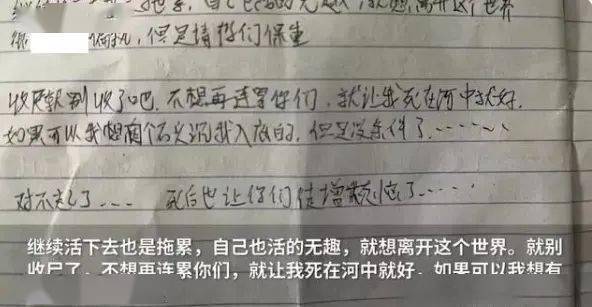 拖累，自己也活的无趣，就想离开这个世界
但是请你们保重
收尸就别收了吧，不想再连累你们，就让我死在河中就好，
如果可以我想有个石头沉我入底的，但是没条件了……
对不起了… 死后也让你们徒增烦恼了……
继续活下去也是拖累，自己也活的无趣，就想离开这个世界。就别
收尸了，不想再连累你们，就让我死在河中就好，如果可以我想有